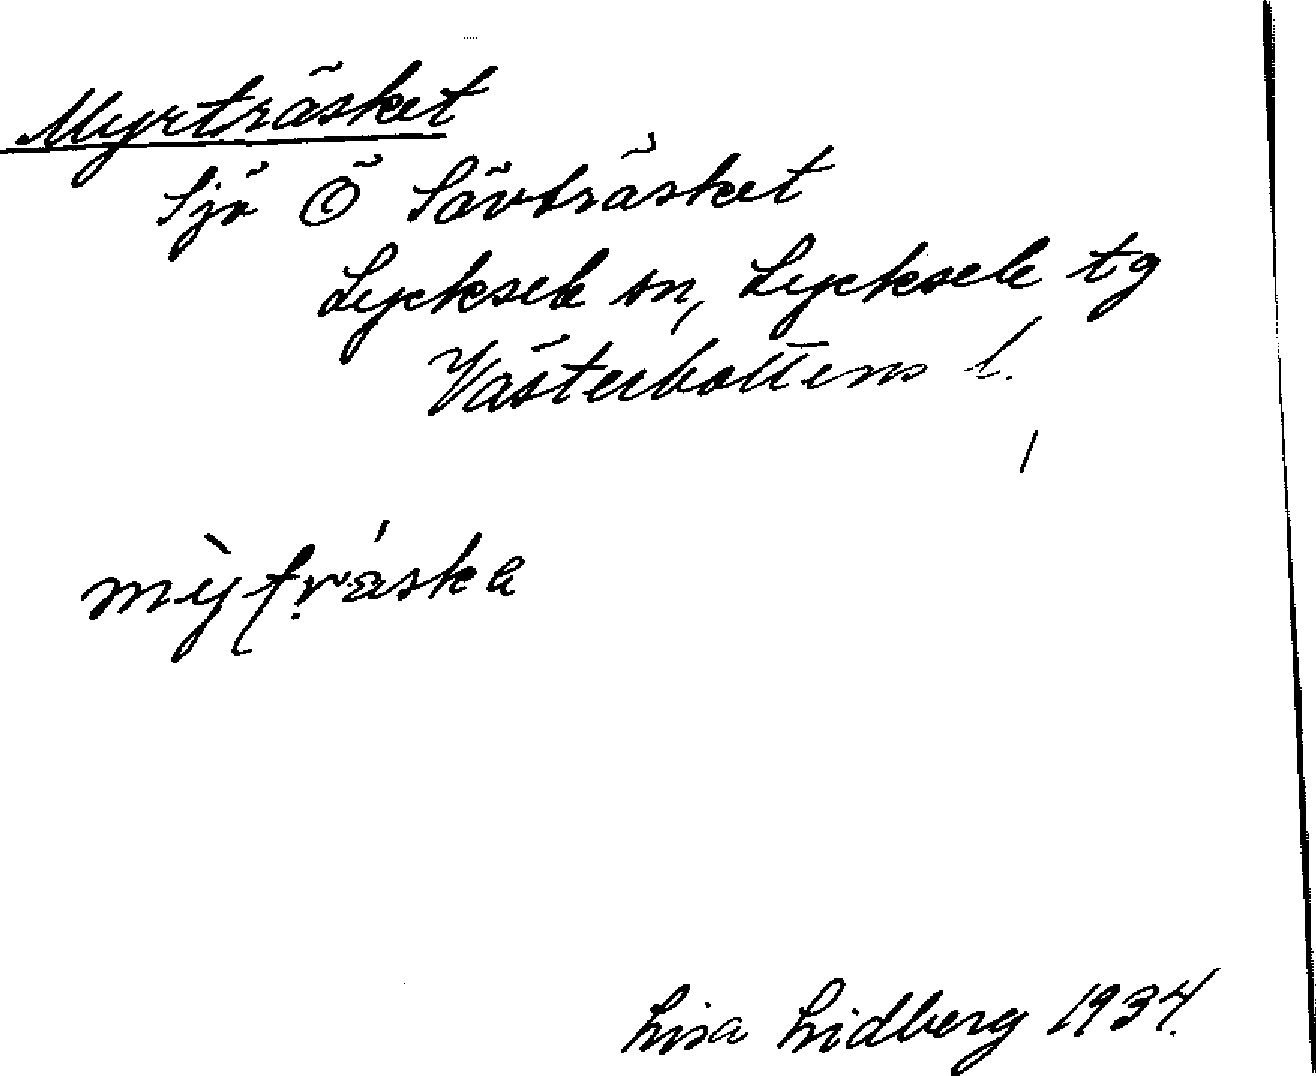 Myrträsket
Sjö Ö Sävträsket
Lycksele sn, Lycksele tg
Västerbottens l.
Lisa Lidberg 1934.